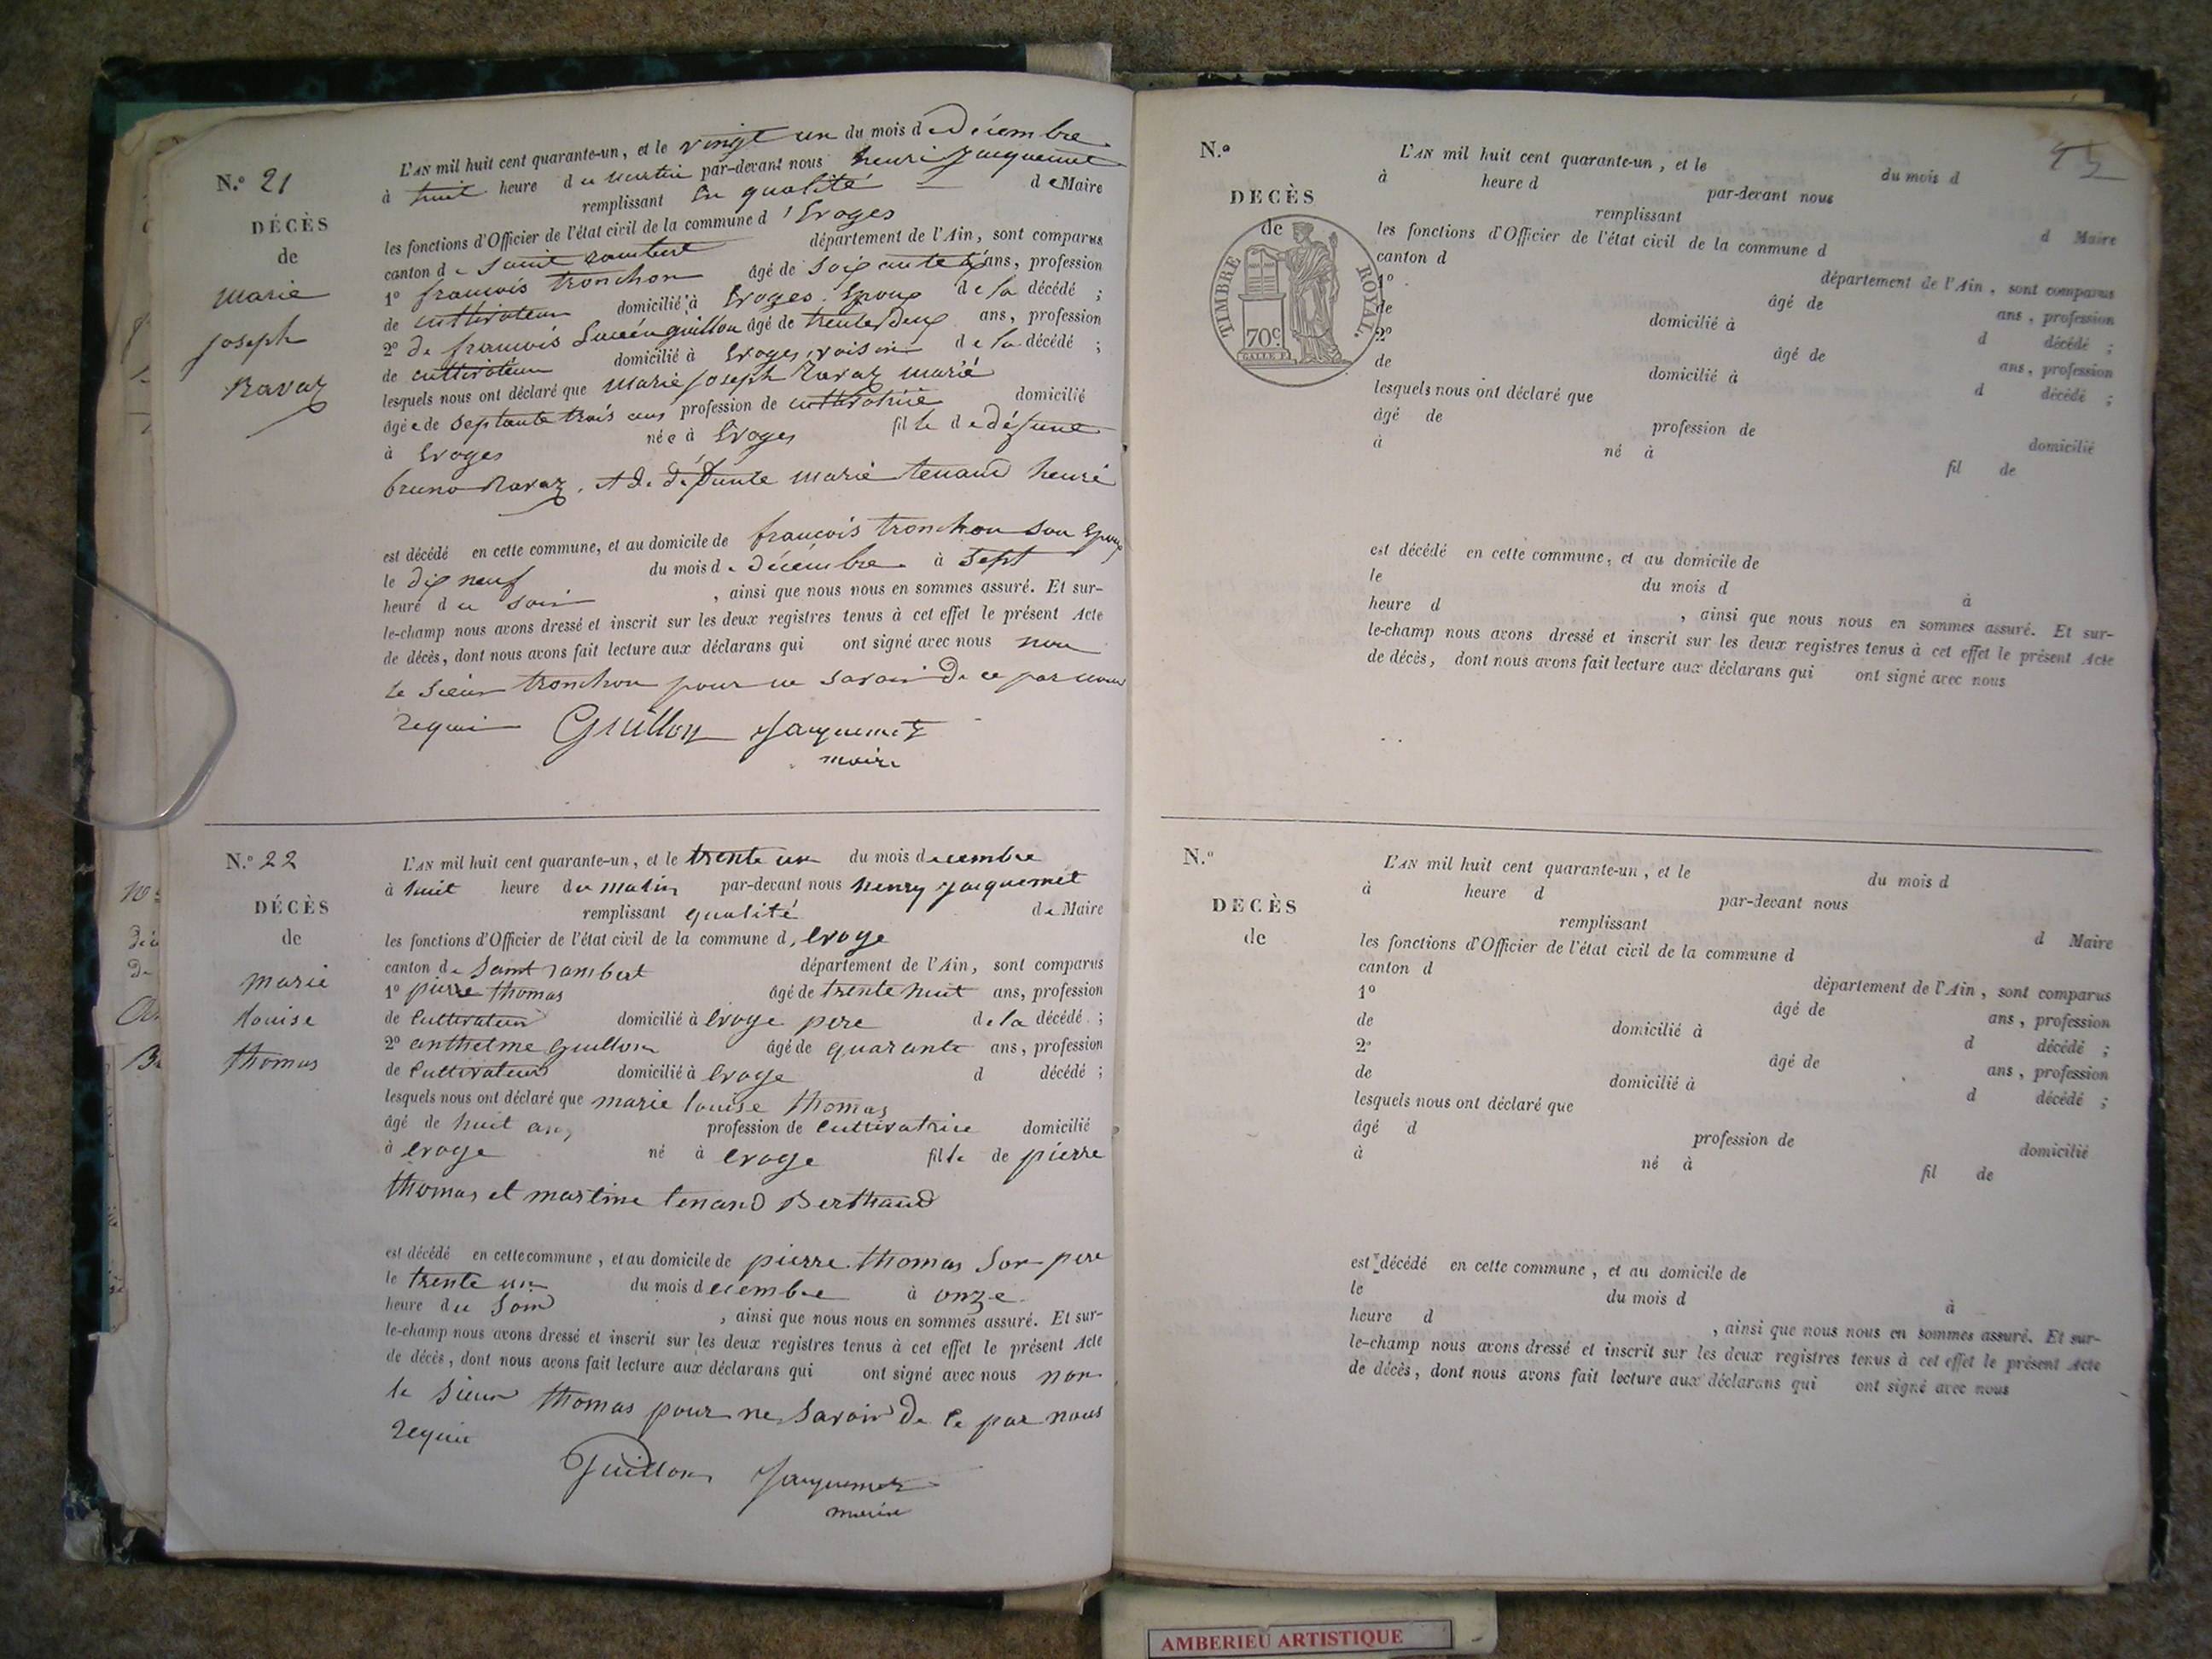 N.º 21
DÉCÈS
de
marie
joseph
Ravaz
L'AN mil huit cent quarante-un, et le vingt un du mois de décembre
à huit heure du matin par-devant nous henri jacquemet
remplissant en qualité de Maire
les fonctions d'Officier de l'état civil de la commune d'Evoges
canton de Saint rambert département de l'Ain, sont comparus
1º francois tronchon âgé de ans, profession
de cultivateur domicilié à Evoges Epoux de la décédé ;
2º de francois guillon âgé de trente deux ans, profession
de cultivateur domicilié à Evoges voisin de la décédé ;
lesquels nous ont déclaré que marie joseph Ravaz marié
âgée de septante trois ans profession de cultivatrice domicilié
à Evoges née à Evoges fille de défunt
bruno Ravaz, et de défunte marie tenand henri
est décédé en cette commune, et au domicile de francois tronchon son Epoux
le dix neuf du mois de décembre à sept
heure du soir , ainsi que nous nous en sommes assuré. Et sur-
le-champ nous avons dressé et inscrit sur les deux registres tenus à cet effet le présent Acte
de décès, dont nous avons fait lecture aux déclarans qui ont signé avec nous non
le sieur tronchon pour ne savoir de ce par nous
requi Guillon Jacquemet
maire
N.º 22
DÉCÈS
de
marie
Louise
thomas
L'AN mil huit cent quarante-un, et le trente un du mois decembre
à huit heure du matin par-devant nous henry jacquemet
remplissant qualité de Maire
les fonctions d'Officier de l'état civil de la commune d, evoge
canton de Saint rambert département de l'Ain, sont comparus
1º pierre thomas âgé de trente huit ans, profession
de Cultivateur domicilié à evoge pere de la décédé ;
2º anthelme Guillon âgé de quarante ans, profession
de Cultivateur domicilié à evoge d décédé ;
lesquels nous ont déclaré que marie louise thomas
âgé de huit ans profession de Cultivatrice domicilié
à evoge né à evoge fille de pierre
thomas et martine tenand Berthaud
est décédé en cette commune, et au domicile de pierre thomas Son pere
le trente un du mois decembre à onze
heure du Soir , ainsi que nous nous en sommes assuré. Et sur-
le-champ nous avons dressé et inscrit sur les deux registres tenus à cet effet le présent Acte
de décès, dont nous avons fait lecture aux déclarans qui ont signé avec nous non
le Sieur thomas pour ne Savoir de Ce par nous
requie
Guillon Jacquemet
maire
N.º
DÉCÈS
de
TIMBRE ROYAL.
70c.
L'AN mil huit cent quarante-un, et le du mois d
à heure d par-devant nous
remplissant d Maire
les fonctions d'Officier de l'état civil de la commune d
canton d département de l'Ain, sont comparus
1º âgé de ans, profession
de domicilié à d décédé ;
2º âgé de ans, profession
de domicilié à d décédé ;
lesquels nous ont déclaré que
âgé de profession de domicilié
à né à fil de
est décédé en cette commune, et au domicile de
le du mois d à
heure d , ainsi que nous nous en sommes assuré. Et sur-
le-champ nous avons dressé et inscrit sur les deux registres tenus à cet effet le présent Acte
de décès, dont nous avons fait lecture aux déclarans qui ont signé avec nous
N.º
DÉCÈS
de
L'AN mil huit cent quarante-un, et le du mois d
à heure d par-devant nous
remplissant d Maire
les fonctions d'Officier de l'état civil de la commune d
canton d département de l'Ain, sont comparus
1º âgé de ans, profession
de domicilié à d décédé ;
2º âgé de ans, profession
de domicilié à d décédé ;
lesquels nous ont déclaré que
âgé d profession de domicilié
à né à fil de
est décédé en cette commune, et au domicile de
le du mois d à
heure d , ainsi que nous nous en sommes assuré. Et sur-
le-champ nous avons dressé et inscrit sur les deux registres tenus à cet effet le présent Acte
de décès, dont nous avons fait lecture aux déclarans qui ont signé avec nous
AMBERIEU ARTISTIQUE